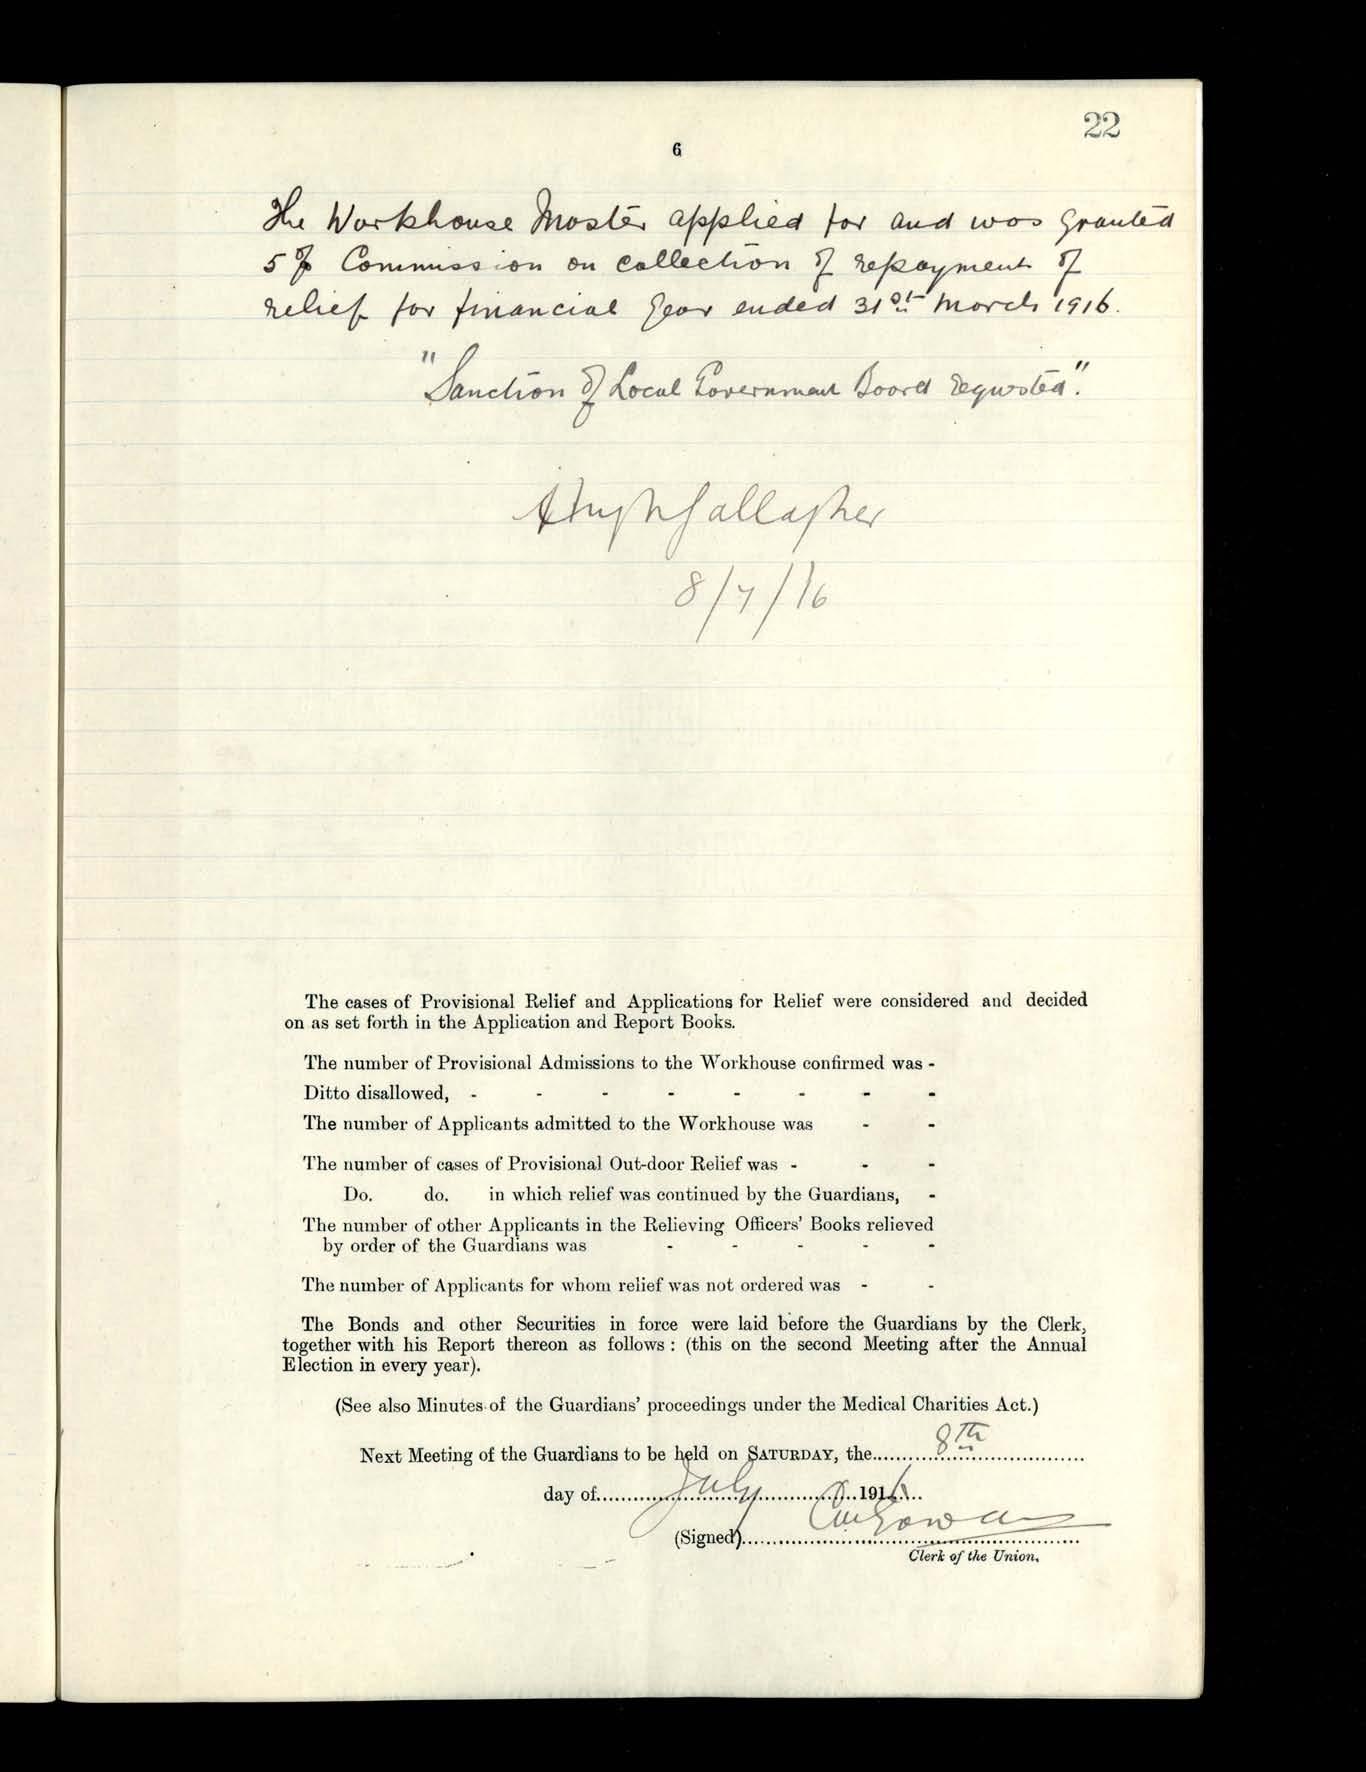 22
6
The Workhouse Master applied for and was granted
5 % Commission on collection of repayment of
relief for financial year ended 31st March 1916.
"Sanction of Local Government Board requested".
Hugh Gallagher
8/7/16
The cases of Provisional Relief and Applications for Relief were considered and decided
on as set forth in the Application and Report Books.
The number of Provisional Admissions to the Workhouse confirmed was -
Ditto disallowed, - - - - - - - -
The number of Applicants admitted to the Workhouse was - -
The number of cases of Provisional Out-door Relief was - - -
Do. do. in which relief was continued by the Guardians, -
The number of other Applicants in the Relieving Officers' Books relieved
by order of the Guardians was - - - - -
The number of Applicants for whom relief was not ordered was - -
The Bonds and other Securities in force were laid before the Guardians by the Clerk,
together with his Report thereon as follows : (this on the second Meeting after the Annual
Election in every year).
(See also Minutes of the Guardians' proceedings under the Medical Charities Act.)
Next Meeting of the Guardians to be held on SATURDAY, the 8th
day of July 1916
(Signed)
Clerk of the Union.